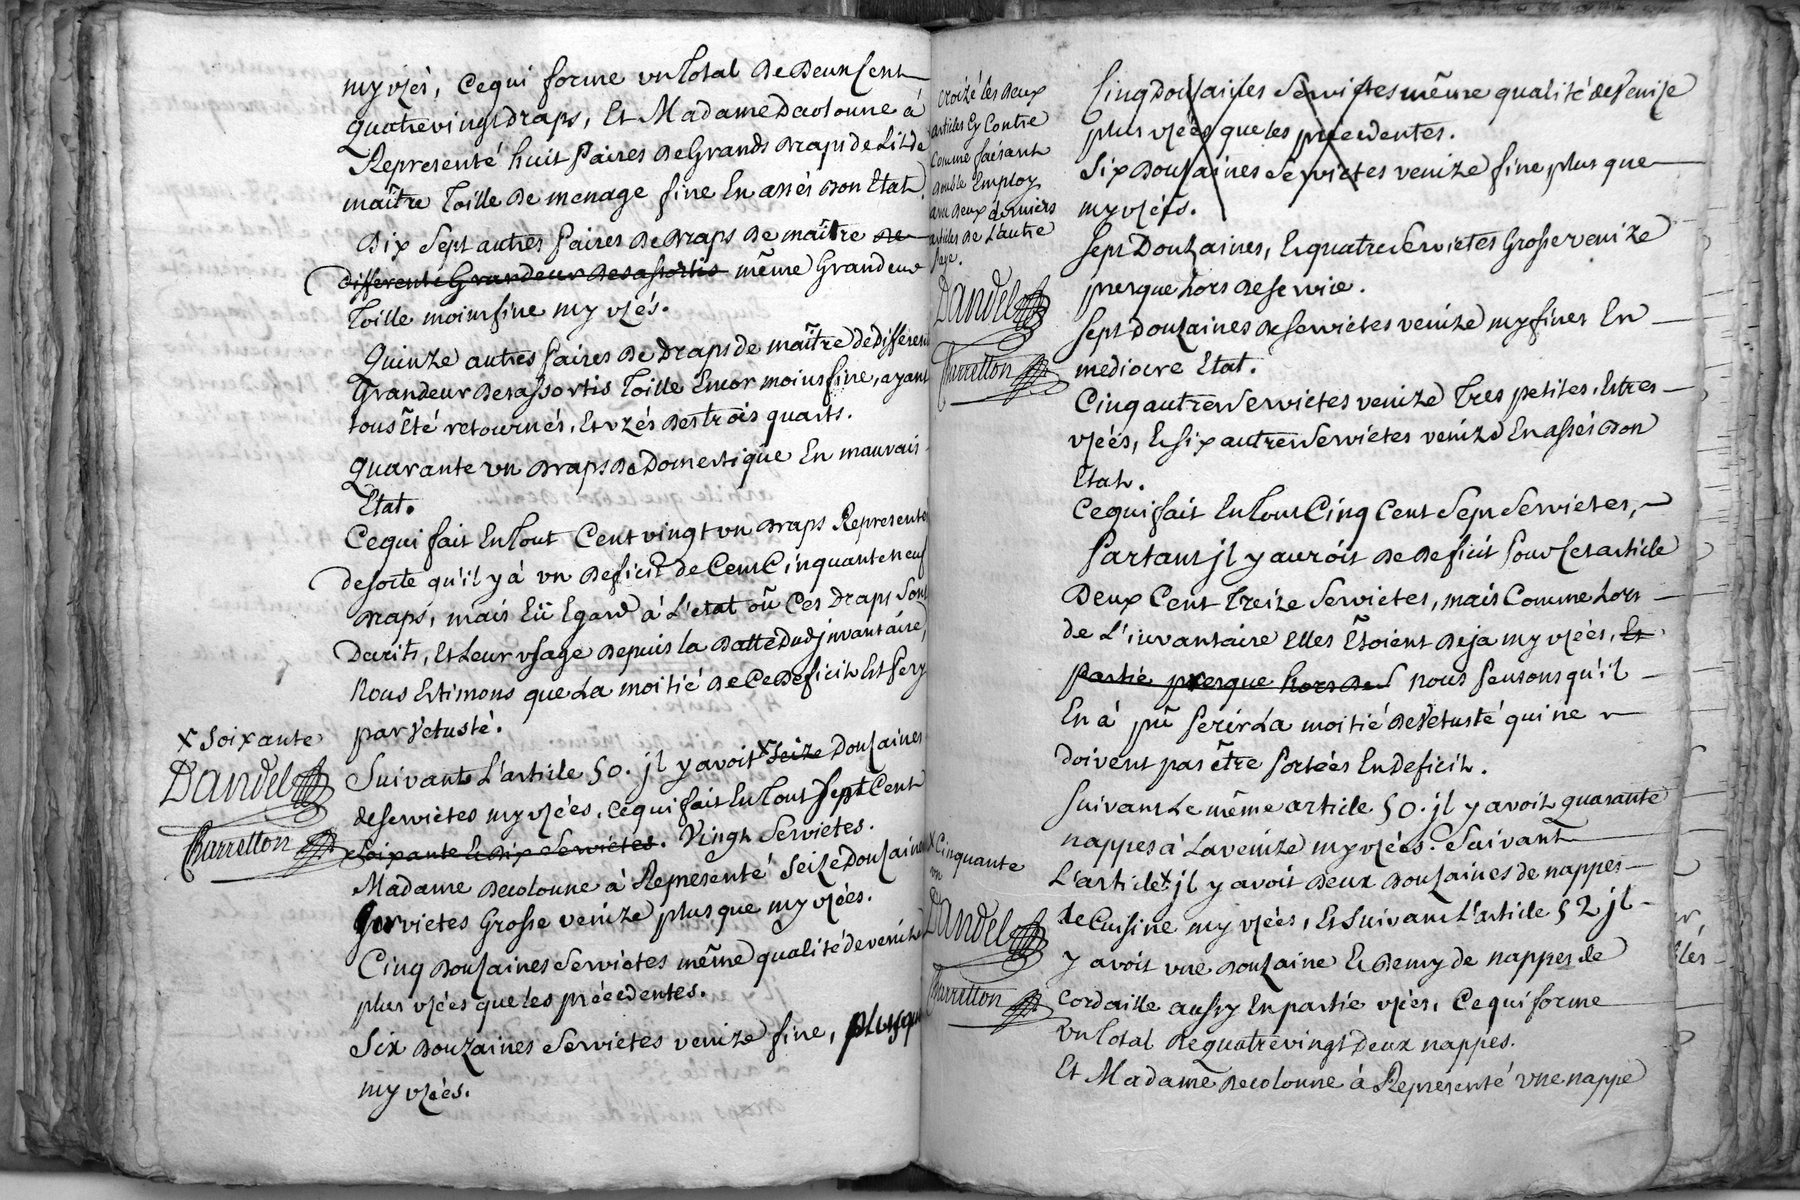 my uzés, Ce qui forme un total de Deux Cent
quatre vingt draps, Et Madame Decolonne à
Representé huit Paires de Grands draps de Lit de
maître Toille de menage fine En assés bon Etat
Dix Sept autres Paires de draps de maître de
differente Grandeur Desassortis même Grandeur
Toille moins fine my uzés.
Quinze autres Paires de Draps de maître de different
Grandeur Desassortis Toille Encor moins fine, ayant
tous Eté retournés, Et uzés des trois quarts.
Quarante un draps de Domestique En mauvais
Etat.
Ce qui fait En tout Cent vingt un draps Representés
de sorte qu'il y à un deficit de Cent Cinquante neuf
draps, mais Eü Egard à L'etat où Ces draps Sont
Decrits, Et Leur usage depuis la datte Dudj invantaire,
Nous Estimons que La moitié de Ce deficit Est Pery
par vetusté.
x Soixante
Dandel
Charretton
Suivant L'article 50. jl y avoit x seize Douzaines
de serviettes my uzées, ce qui fait En tout Sept Cent
Soixante Et Dix Serviétes. Vingt Serviétes.
Madame decolonne à Representé Seize Douzaines
Serviétes Grosse venize plus que my uzées.
Cinq douzaines Serviétes même qualité de venize
plus uzées que les précedentes.
Six Douzaines Serviétes venize fine, plus que
my uzées.
Croizé les deux
articles Cy Contre
Comme faisant
double Employ
aux deux derniers
articles de L'autre
Page.
Dandel
Charretton
Cinq Douzaines Serviétes même qualité de Venize
plus uzées que les precedentes.
Six Douzaines Serviétes venize fine plus que
my uzées.
Sept Douzaines, Et quatre Serviétes Grosse venize
presque hors de service.
Sept douzaines de Serviétes venize my fines En
mediocre Etat.
Cinq autres Serviétes venize Tres petites, Et tres
uzées, Et Six autres Serviétes venize En assés bon
Etat.
Ce qui fait En tout Cinq Cent Sept Serviétes,
Partant jl y auroit de deficit Pour Cet article
Deux Cent Treize Serviétes, mais Comme Lors
de L'invantaire elles Etoient deja my uzées, Et
partie presque hors de nous Pensons qu'il
En à pû Perir La moitié de vetusté qui ne
doivent pas être Portées En deficit.
Suivant Le même article 50. jl y avoit quarante
nappes à La venize my uzées. Suivant
L'article x jl y avoit deux douzaines de nappes
x Cinquante
un
Dandel
Charretton
de Cuisine my uzées, Et Suivant L'article 52 jl
y avoit une douzaine Et Demy de nappes de
Cordaille aussy En partie uzées, Ce qui forme
un total de quatre vingt Deux nappes.
Et Madame decolonne à Representé une nappe